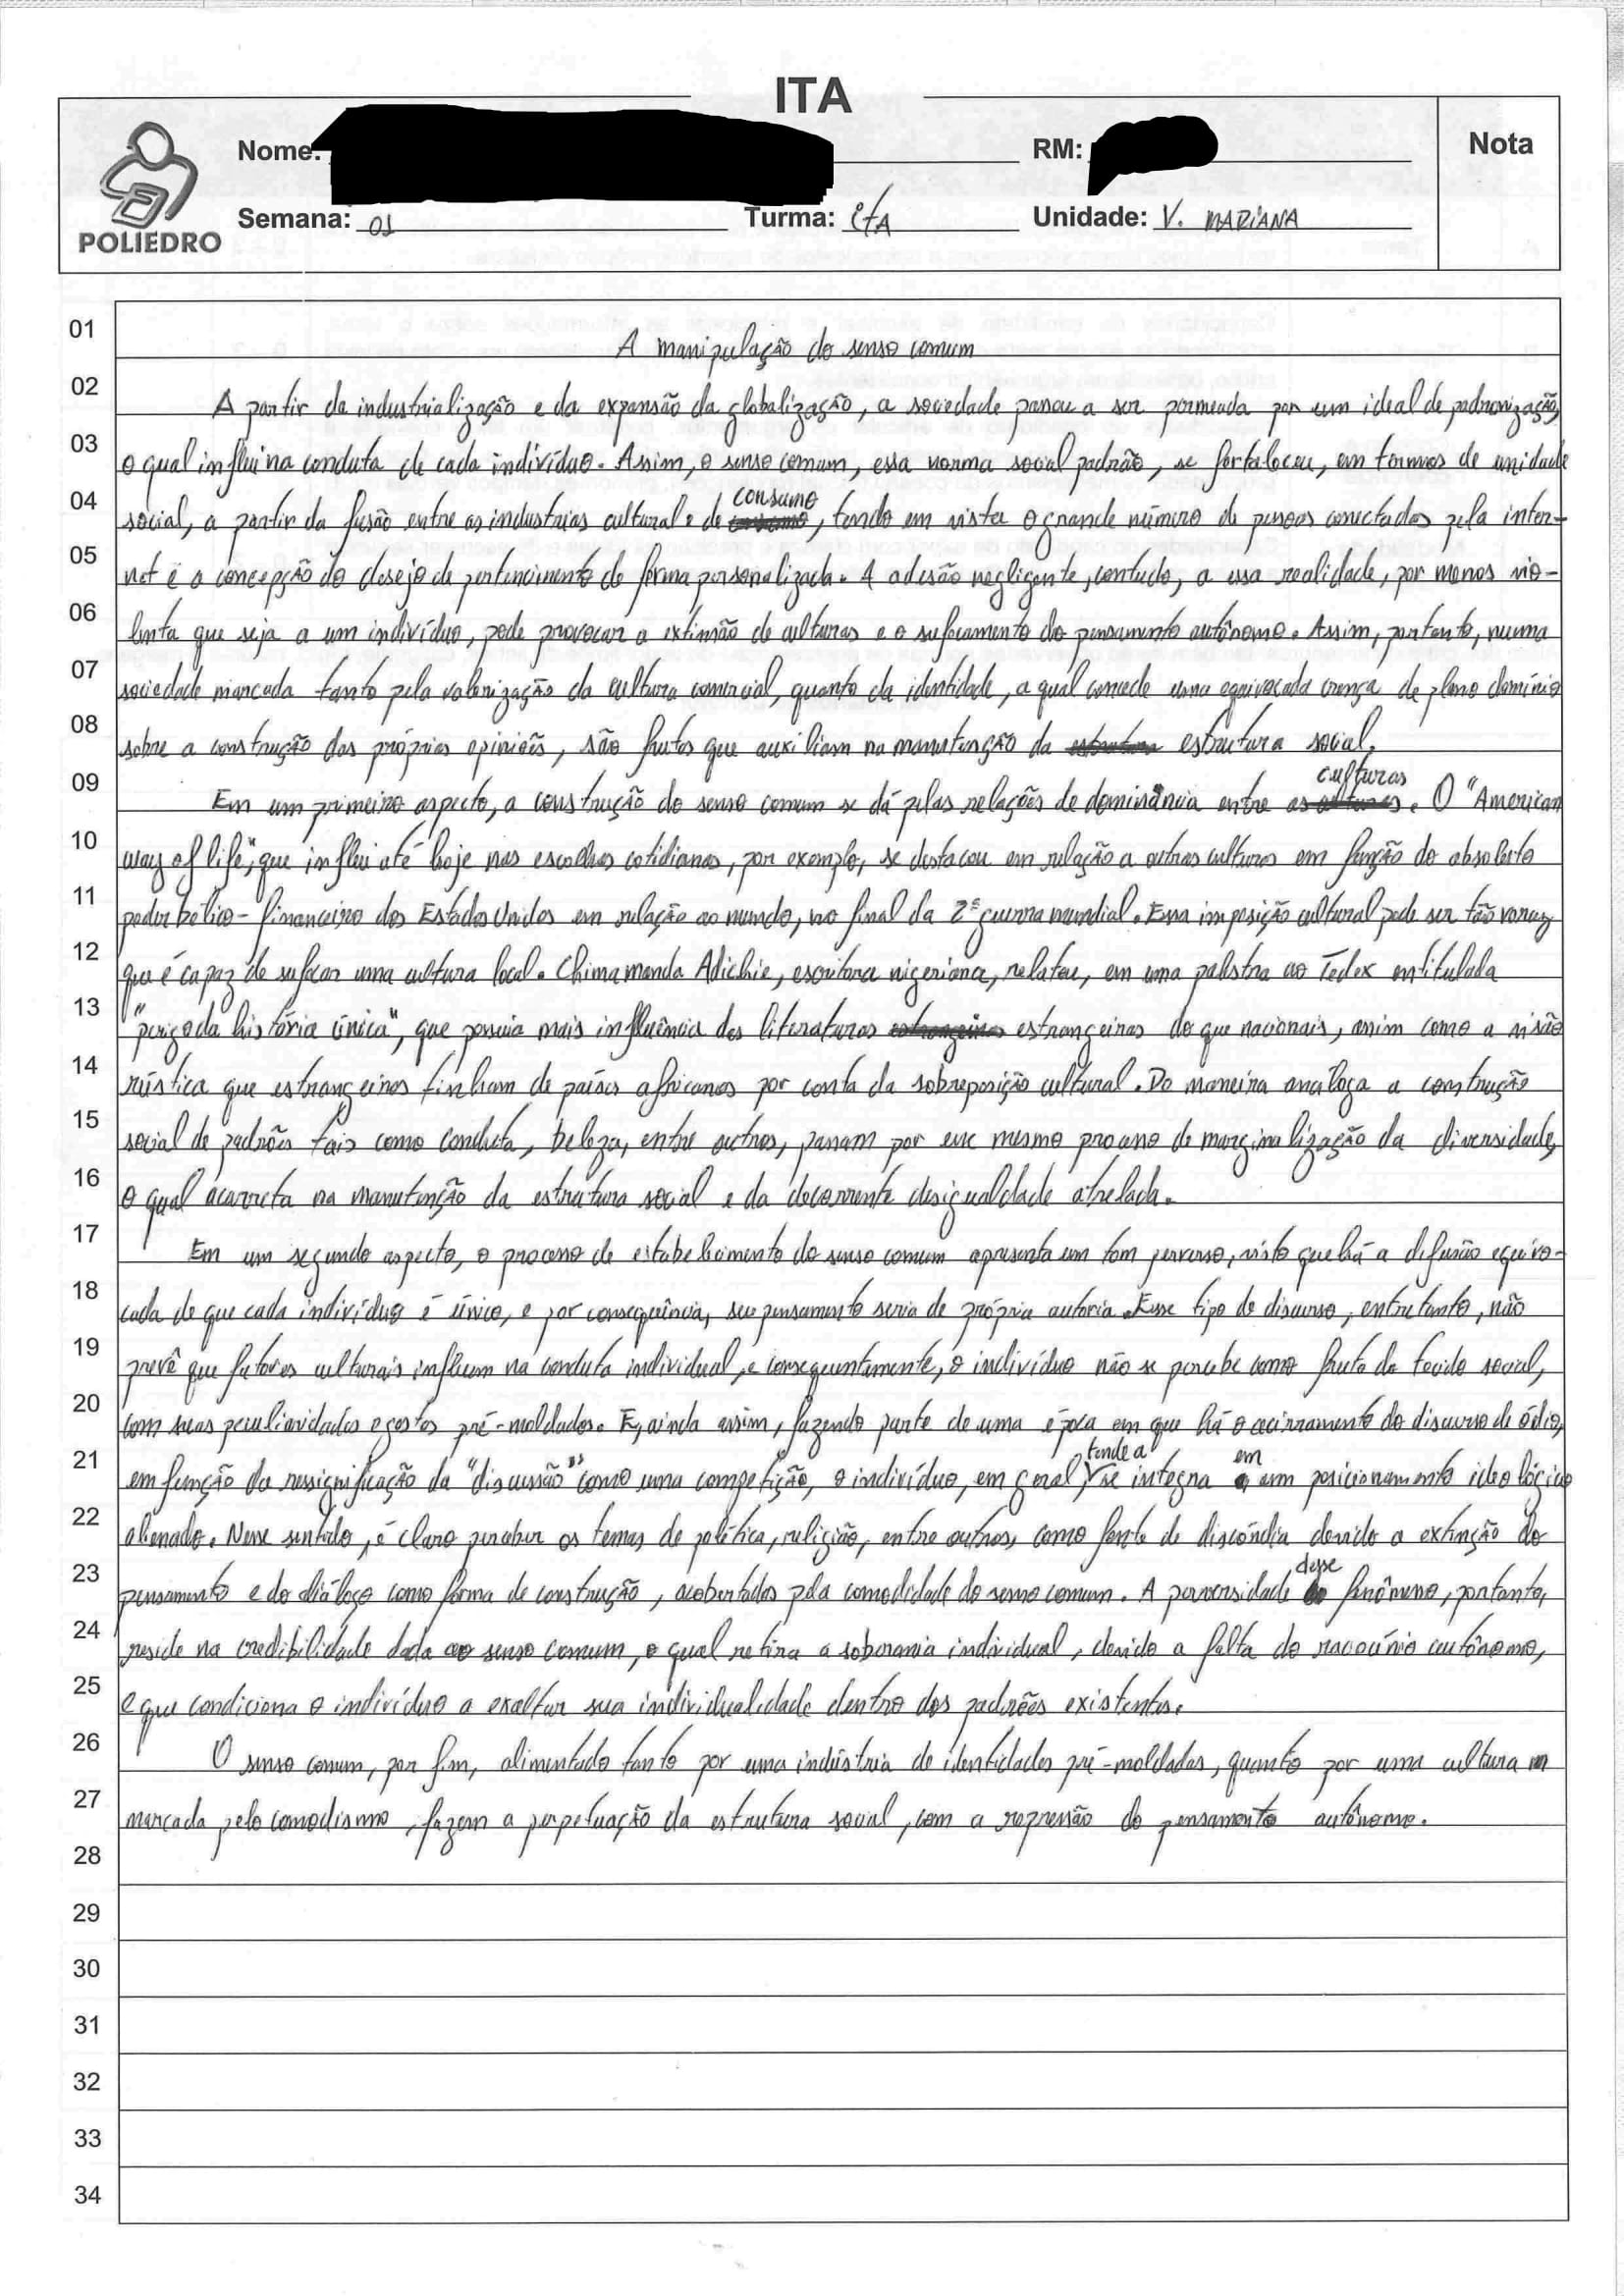 ITA
POLIEDRO
Nome:
RM:
Nota
Semana: 01
Turma: ITA
Unidade: V. MARIANA
01 A manipulação do senso comum
02 A partir da industrialização e da expansão da globalização, a sociedade passou a ser permeada por um ideal de padronização,
03 o qual influi na conduta de cada indivíduo. Assim, o senso comum, essa norma social padrão, se fortaleceu, em termos de unidade
04 social, a partir da fusão entre as industrias cultural e de consumo, tendo em vista o grande número de pessoas conectadas pela inter-
05 net e a concepção do desejo de pertencimento de forma personalizada. A adesão negligente, contudo, a essa realidade, por menos vio-
06 lenta que seja a um indivíduo, pode provocar a extinsão de culturas e o sufocamento do pensamento autônomo. Assim, portanto, numa
07 sociedade marcada tanto pela valorização da cultura comercial, quanto da identidade, a qual concede uma equivocada crença de pleno domínio
08 sobre a construção das próprias opiniões, são frutos que auxiliam na manutenção da estrutura social.
09 Em um primeiro aspecto, a construção do senso comum se dá pelas relações de dominância entre culturas. O "American
10 way of life", que influi até hoje nas escolhas cotidianas, por exemplo, se destacou em relação a outras culturas em função do absoluto
11 poder bélico-financeiro dos Estados Unidos em relação ao mundo, no final da 2ª guerra mundial. Essa imposição cultural pode ser tão voraz
12 que é capaz de sufocar uma cultura local. Chimamanda Adichie, escritora nigeriana, relatou, em uma palestra ao Tedex entitulada
13 "perigo da história única", que possuia mais influência das literaturas estrangeiras do que nacionais, assim como a visão
14 rústica que estrangeiros tinham de países africanos por conta da sobreposição cultural. De maneira análoga a construção
15 social de padrões tais como conduta, beleza, entre outros, passam por esse mesmo processo de marginalização da diversidade,
16 o qual acarreta na manutenção da estrutura social e da decorrente desigualdade atrelada.
17 Em um segundo aspecto, o processo de estabelecimento do senso comum apresenta um tom perverso, visto que há a difusão equivo-
18 cada de que cada indivíduo é único, e por consequência, seu pensamento seria de própria autoria. Esse tipo de discurso, entretanto, não
19 prevê que fatores culturais influem na conduta individual, e consequentemente, o indivíduo não se percebe como fruto do tecido social,
20 com suas peculiaridades e gostos pré-moldados. E, ainda assim, fazendo parte de uma época em que há o acirramento do discurso de ódio,
21 em função da ressignificação da "discussão" como uma competição, o indivíduo, em geral, tende a se integra em um posicionamento ideológico
22 alienado. Nesse sentido, é claro perceber os temas de política, religião, entre outros, como fonte de discórdia devido a extinção do
23 pensamento e do diálogo como forma de construção, acobertados pela comodidade do senso comum. A perversidade desse fenômeno, portanto,
24 reside na credibilidade dada ao senso comum, o qual retira a soberania individual, devido a falta do raciocínio autônomo,
25 e que condiciona o indivíduo a exaltar sua individualidade dentro dos padrões existentes.
26 O senso comum, por fim, alimentado tanto por uma indústria de identidades pré-moldadas, quanto por uma cultura m
27 marcada pelo comodismo, fazem a perpetuação da estrutura social, com a repressão do pensamento autônomo.
28
29
30
31
32
33
34